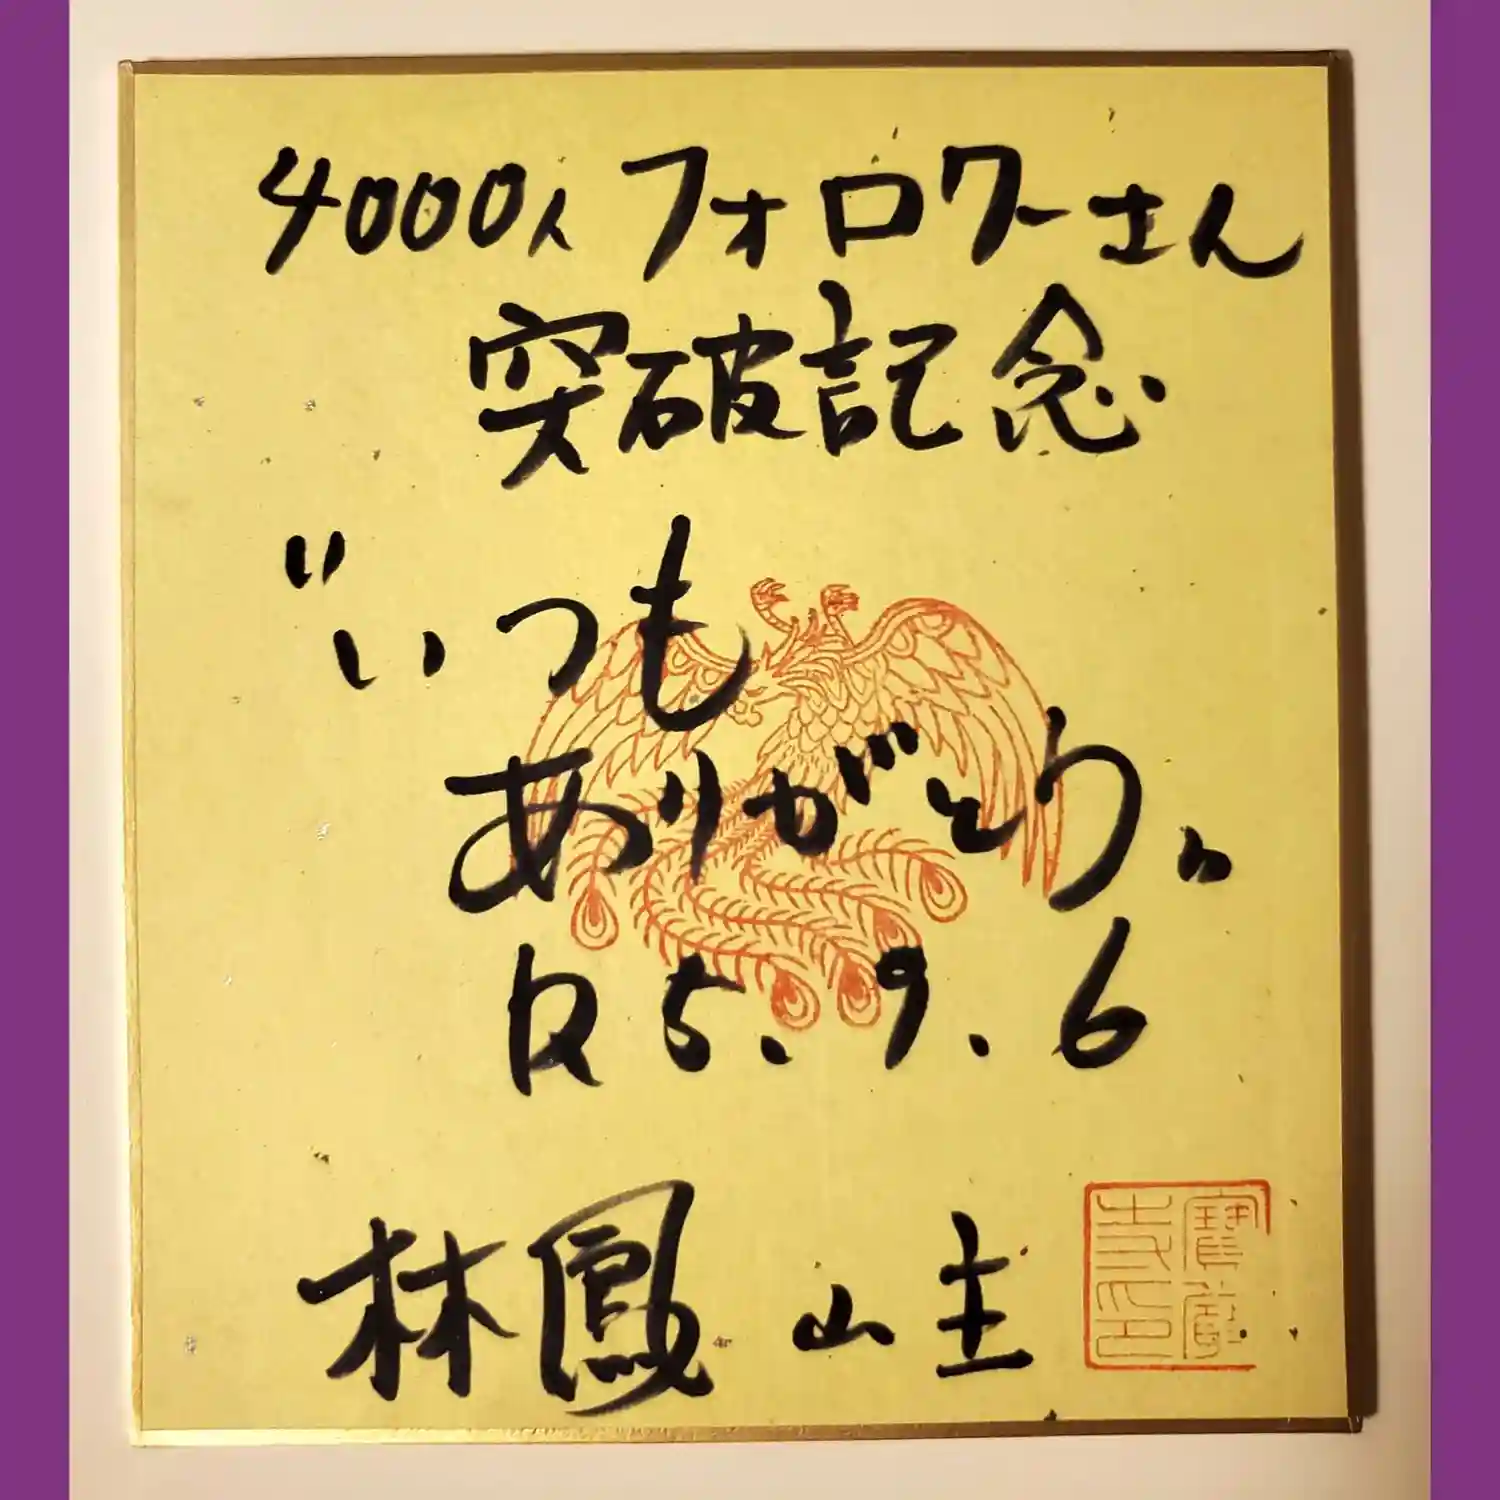 4000人フォロワーさん
突破記念
"いつも
ありがとう"
R5.9.6
林鳳山主